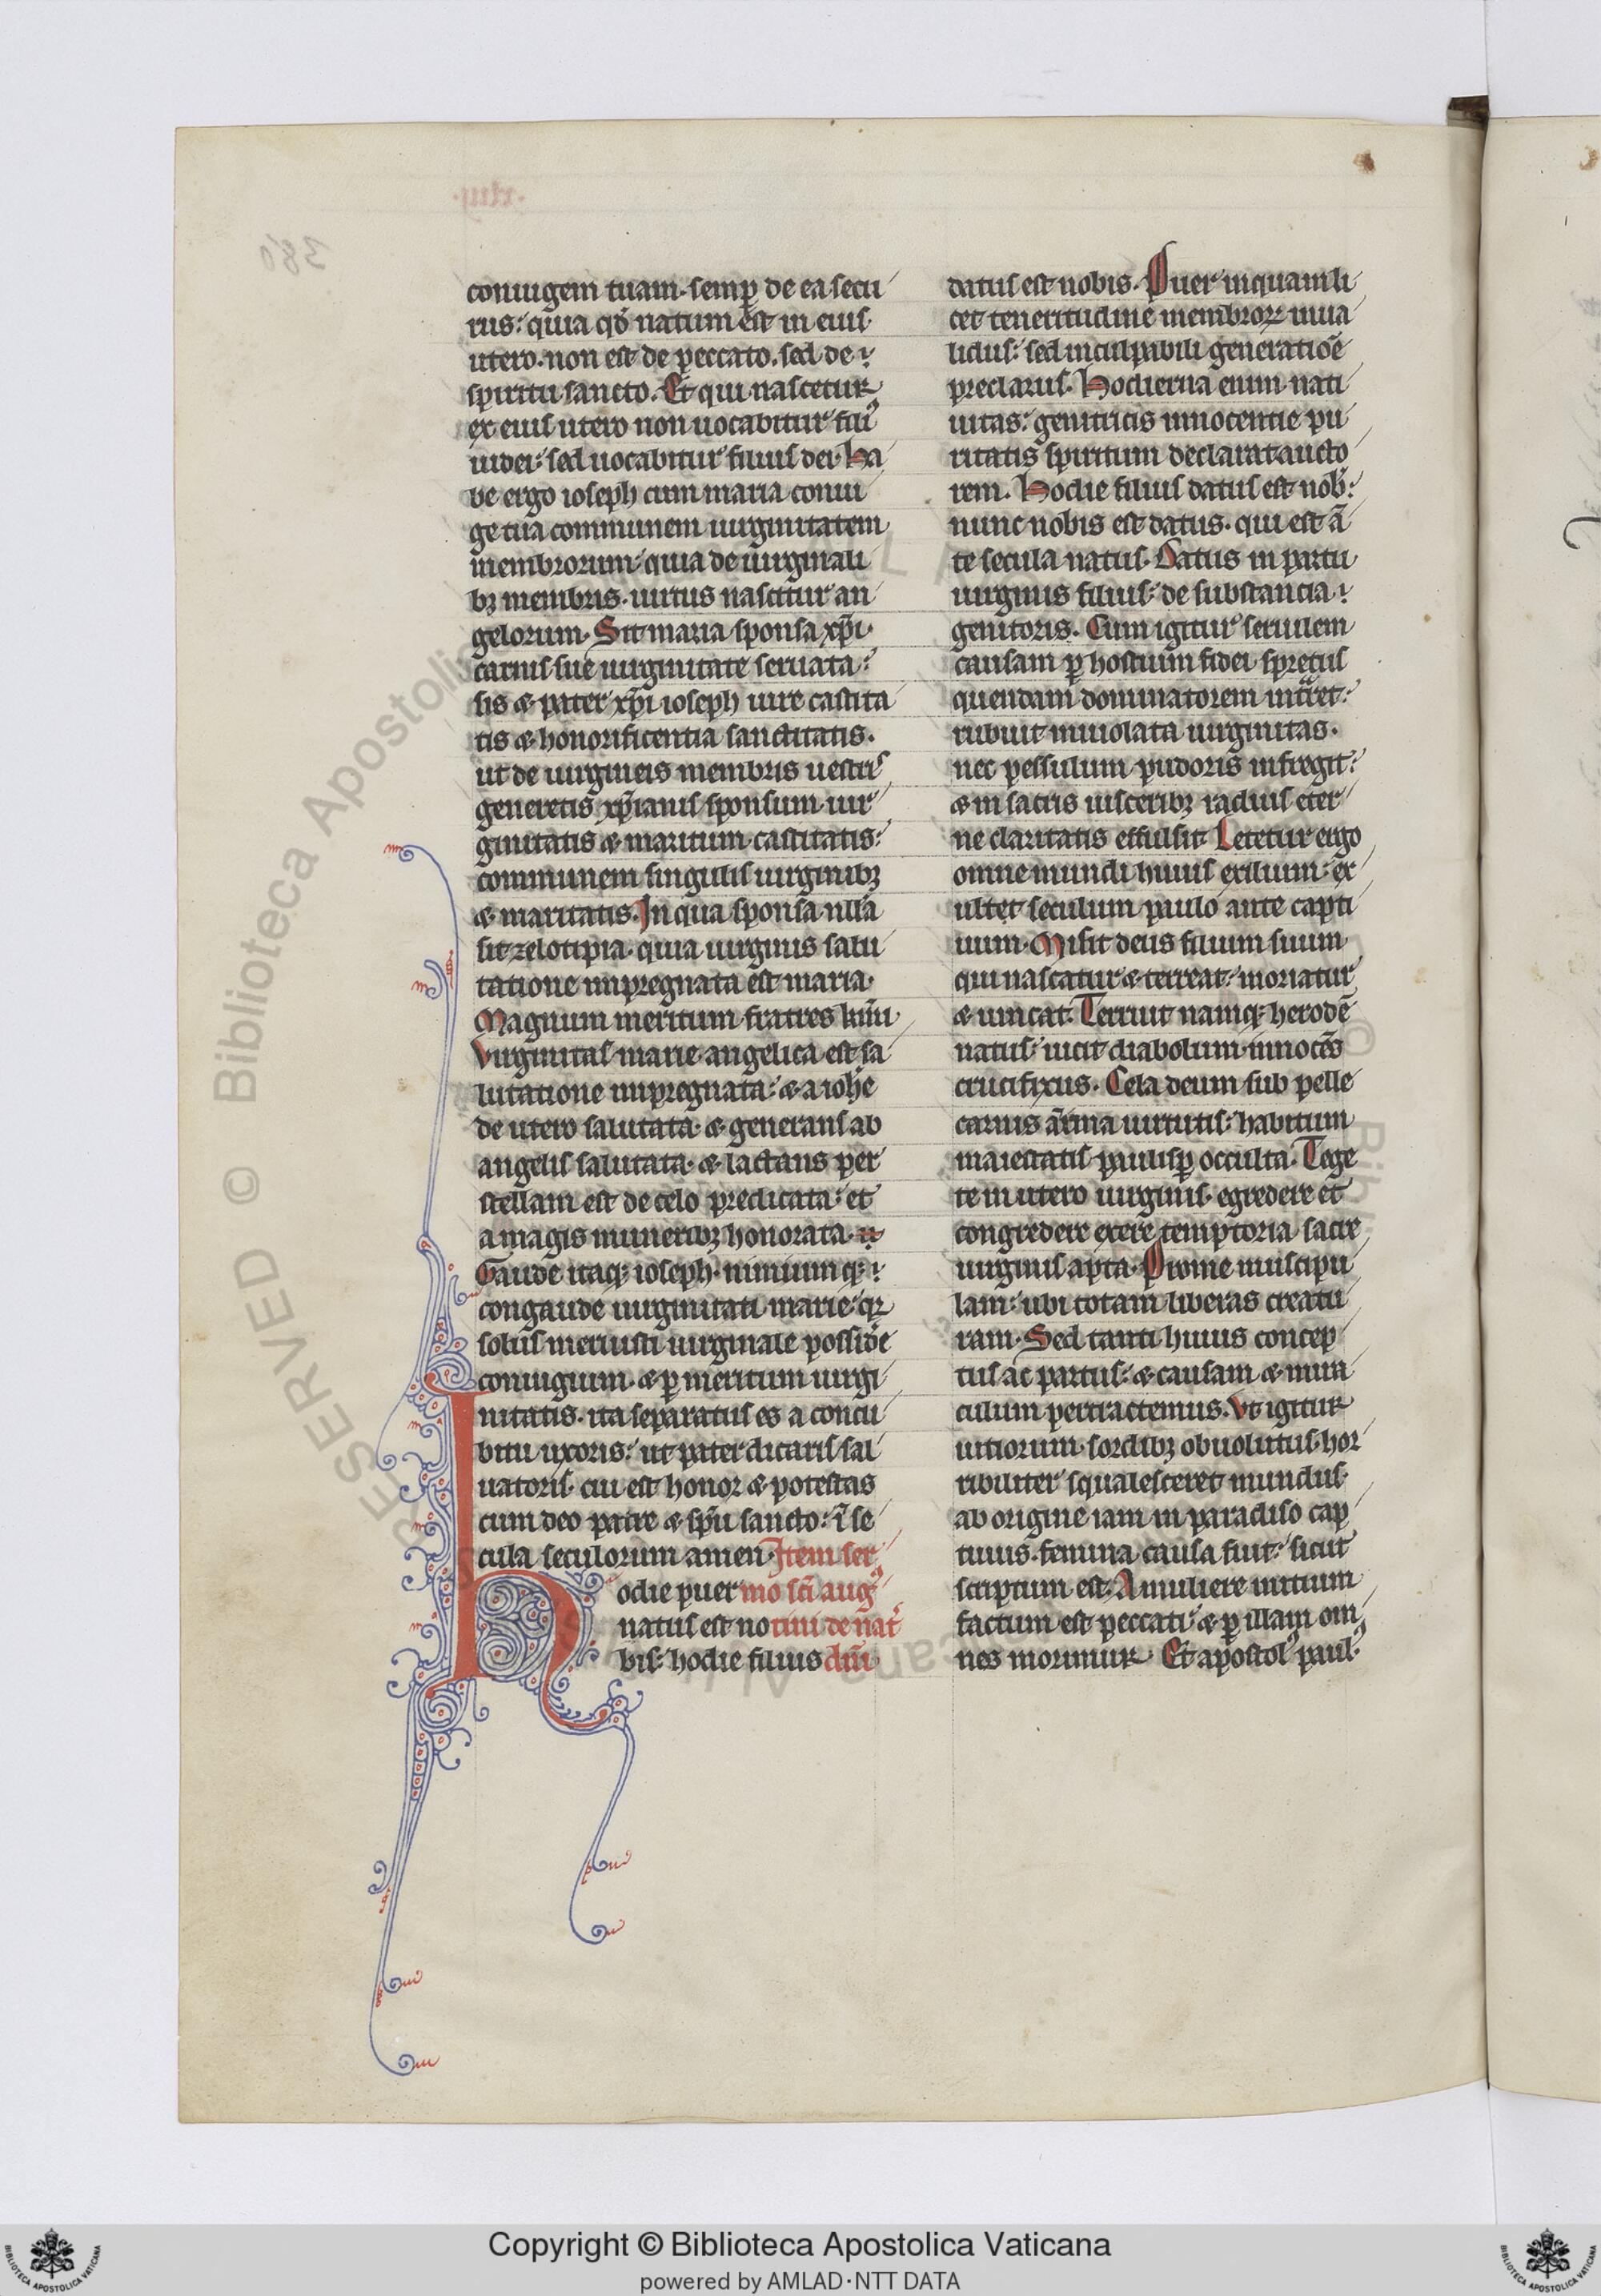 coniugem tuam. semp̱ de ea secu
rus: quia qđ natum est in eius
utero. non est de peccato. sed de
spiritu sancto. Et qui nascetur
ex eius utero non uocabitur fili᷒
uidei: sed uocabitur filius dei. Ha
be ergo ioseph cum maria coniu
ge tua communem uirginitatem
membrorum: quia de uirginali
bꝫ membris. uirtus nascitur an
gelorum. Sit maria sponsa xp̄i
carnis sue uirginitate seruata:
sis ⁊ pater xp̄i ioseph iure castita
tis ⁊ honorificentia sanctitatis.
ut de uirgineis membris uestris
generetis xp̄ianis sponsum uir
ginitatis ⁊ maritum castitatis:
communem singulis uirginibꝫ
⁊ maritatis. In qua sponsa nlla
sit zelotipia. quia uirginis salu
tatione impregnata est maria.
Magnum meritum fratres kmi
Virginitas marie angelica est sa
lutatione impregnata: ⁊ a ioħe
de utero salutata. ⁊ generans ab
angelis salutata. ⁊ lactans per
stellam est de celo predicata: et
a magis muneribꝫ honorata.
Gaude itaqꝫ ioseph. nimiumqꝫ
congaude uirginitati marie: qꝛ
solus meruisti uirginale posside
coniugium. ⁊ p̱ meritum uirgi
nitatis. ita separatus es a concu
bitu uxoris: ut pater dicaris sal
uatoris. cui est honor ⁊ potestas
cum deo patre ⁊ sp̄u sancto: ī se
cula seculorum amen. Item ser
Hodie puer mo sc̄i aug᷒
natus est no tini de nat̄
bis: hodie filius dn̄i
datus est nobis. Puer inquam li
cet teneritudine membroꝝ inua
lidus: sed inculpabili generatiōe
preclarus. Hodierna enim nati
uitas: genitricis innocentie pu
ritatis spiritum declarat aucto
rem. Hodie filius datus est nob̄:
nunc nobis est datus. qui est ā
te secula natus. Datus in partu
uirginis filius: de substancia
genitoris. Cum igitur seruilem
causam p̱ hostium fidei spretus
quendam dominatorem int̄ret:
rubuit inuiolata uirginitas.
nec pessulum pudoris infregit:
⁊ in sacris uisceribꝫ radius eter
ne claritatis effulsit. Letetur ergo
omne mundi huius exilium: ex
ultet seculum paulo ante capti
uum. Misit deus filium suum
qui nascatur ⁊ terreat: moriatur
⁊ uincat. Terruit namqꝫ herodē
natus: uicit diabolum innocēs
crucifixus. Cela deum sub pelle
carnis arma uirtutis: habitum
maiestatis paulisp̱ occulta. Tege
te in utero uirginis. egredere et
congredere exere temptoria sacre
uirginis apta. Prome muscipu
lam: ubi totam liberas creatu
ram. Sed tanti huius concep
tus ac partus: ⁊ causam ⁊ mira
culum pertractemus. Vt igitur
uitiorum. sordibꝫ obuolutus. hor
ribiliter squalesceret mundus
ab origine iam in paradiso cap
tiuus. femina causa fuit: sicut
scriptum est. A muliere initium
factum est peccati: ⁊ p̱ illam om
nes morimur. Et apostol᷒ paul᷒
Copyright © Biblioteca Apostolica Vaticana
powered by AMLAD·NTT DATA